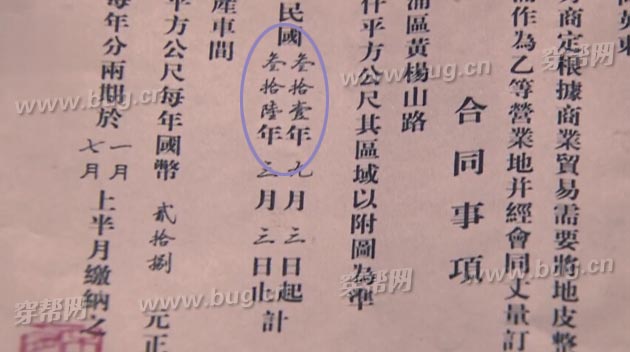 商定根據商業貿易需要將地皮整
作為乙等營業地并經會同丈量訂
合同事項
浦區黃楊山路
仟平方公尺其區域以附圖為準
民國叁拾壹年九月三日起計
叁拾陸年三月三日止
產車間
平方公尺每年國幣貳拾捌元正
每年分兩期於一月七月上半月繳納之
穿帮网 www.bug.cn
穿帮网 www.bug.cn
穿帮网 www.bug.cn